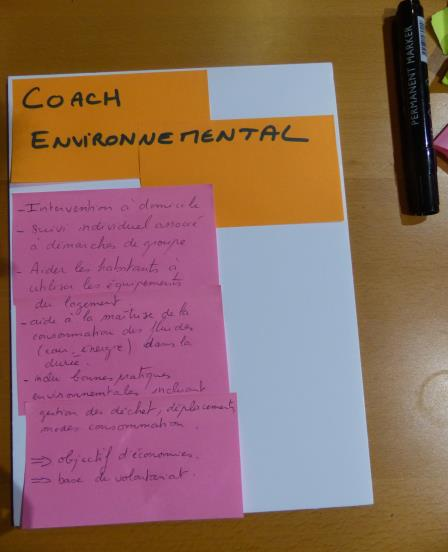 COACH
ENVIRONNEMENTAL
- Intervention à domicile
- Suivi individuel associé
à démarches de groupe
- Aider les habitants à
utiliser les équipements
du logement.
- aide à la maîtrise de la
consommation des fluides
(eau_énergie) dans la
durée.
- inclu bonnes pratiques
environnementales incluant
gestion des déchet, déplacements,
modes consommation.
⇒ objectif d'économies.
⇒ base de volontariat.
PERMANENT MARKER